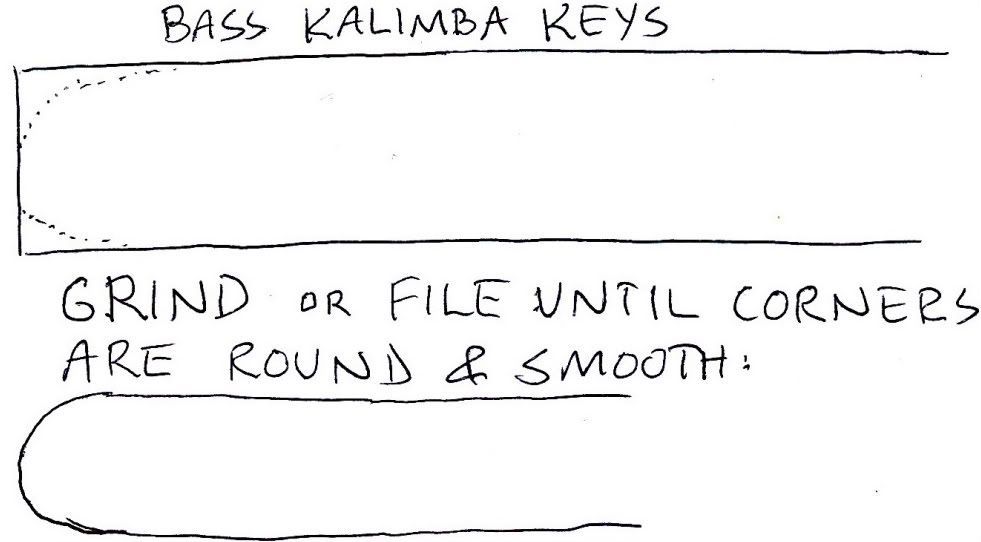 BASS KALIMBA KEYS
GRIND OR FILE UNTIL CORNERS
ARE ROUND & SMOOTH: